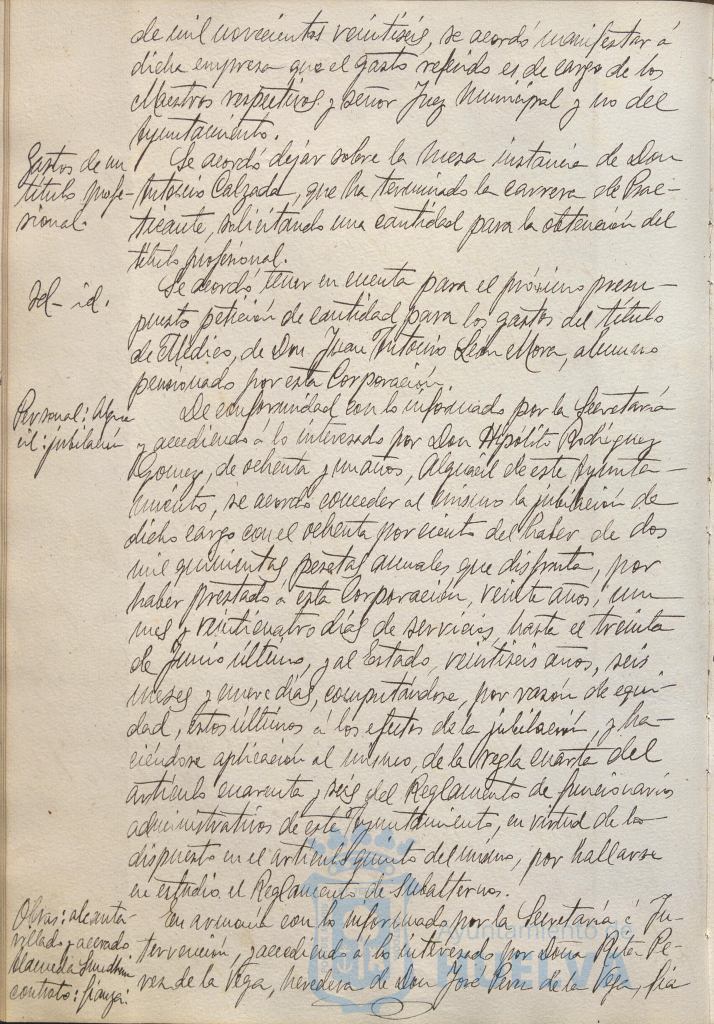 de mil novecientos veintiseis, se acordó manifestar á
dicha empresa que el gasto referido es de cargo de los
Maestros respectivos y señor Juez Municipal y no del
Ayuntamiento.
Gastos de un
título profe-
sional.
Se acordó dejar sobre la mesa instancia de Don
Antonio Calzada, que ha terminado la carrera de Prac-
ticante, solicitando una cantidad para la obtención del
título profesional.
Id - id.
Se acordó tener en cuenta para el próximo presu-
puesto petición de cantidad para los gastos del título
de Médico, de Don Juan Antonio León Mora, alumno
pensionado por esta Corporación.
Personal: Algua
cil: jubilación
De conformidad con lo informado por la Secretaría
y accediendo á lo interesado por Don Hipólito Rodríguez
Gomez, de ochenta y un años, Alguacil de este Ayunta-
miento, se acordó conceder al mismo la jubilación de
dicho cargo con el ochenta por ciento del haber de dos
mil quinientas pesetas anuales que disfruta, por
haber prestado á esta Corporación, veinte años, un
mes y veinticuatro días de servicios, hasta el treinta
de Junio último, y al Estado, veintiseis años, seis
meses y nueve días, computándose, por razón de equi-
dad, estos últimos á los efectos de la jubilación, y ha-
ciéndose aplicación al mismo, de la regla cuarta del
artículo cuarenta y seis del Reglamento de funcionarios
administrativos de este Ayuntamiento, en virtud de lo
dispuesto en el artículo quinto del mismo, por hallarse
en estudio el Reglamento de Subalternos.
Obras: alcanta
rillado y acerado
Alameda Sundheim
contrato: fianza:
En armonía con lo informado por la Secretaría é In-
tervención, y accediendo á lo interesado por Doña Rita Pe-
rez de la Vega, heredera de Don José Perez de la Vega, fia
Ayuntamiento de
HUELVA